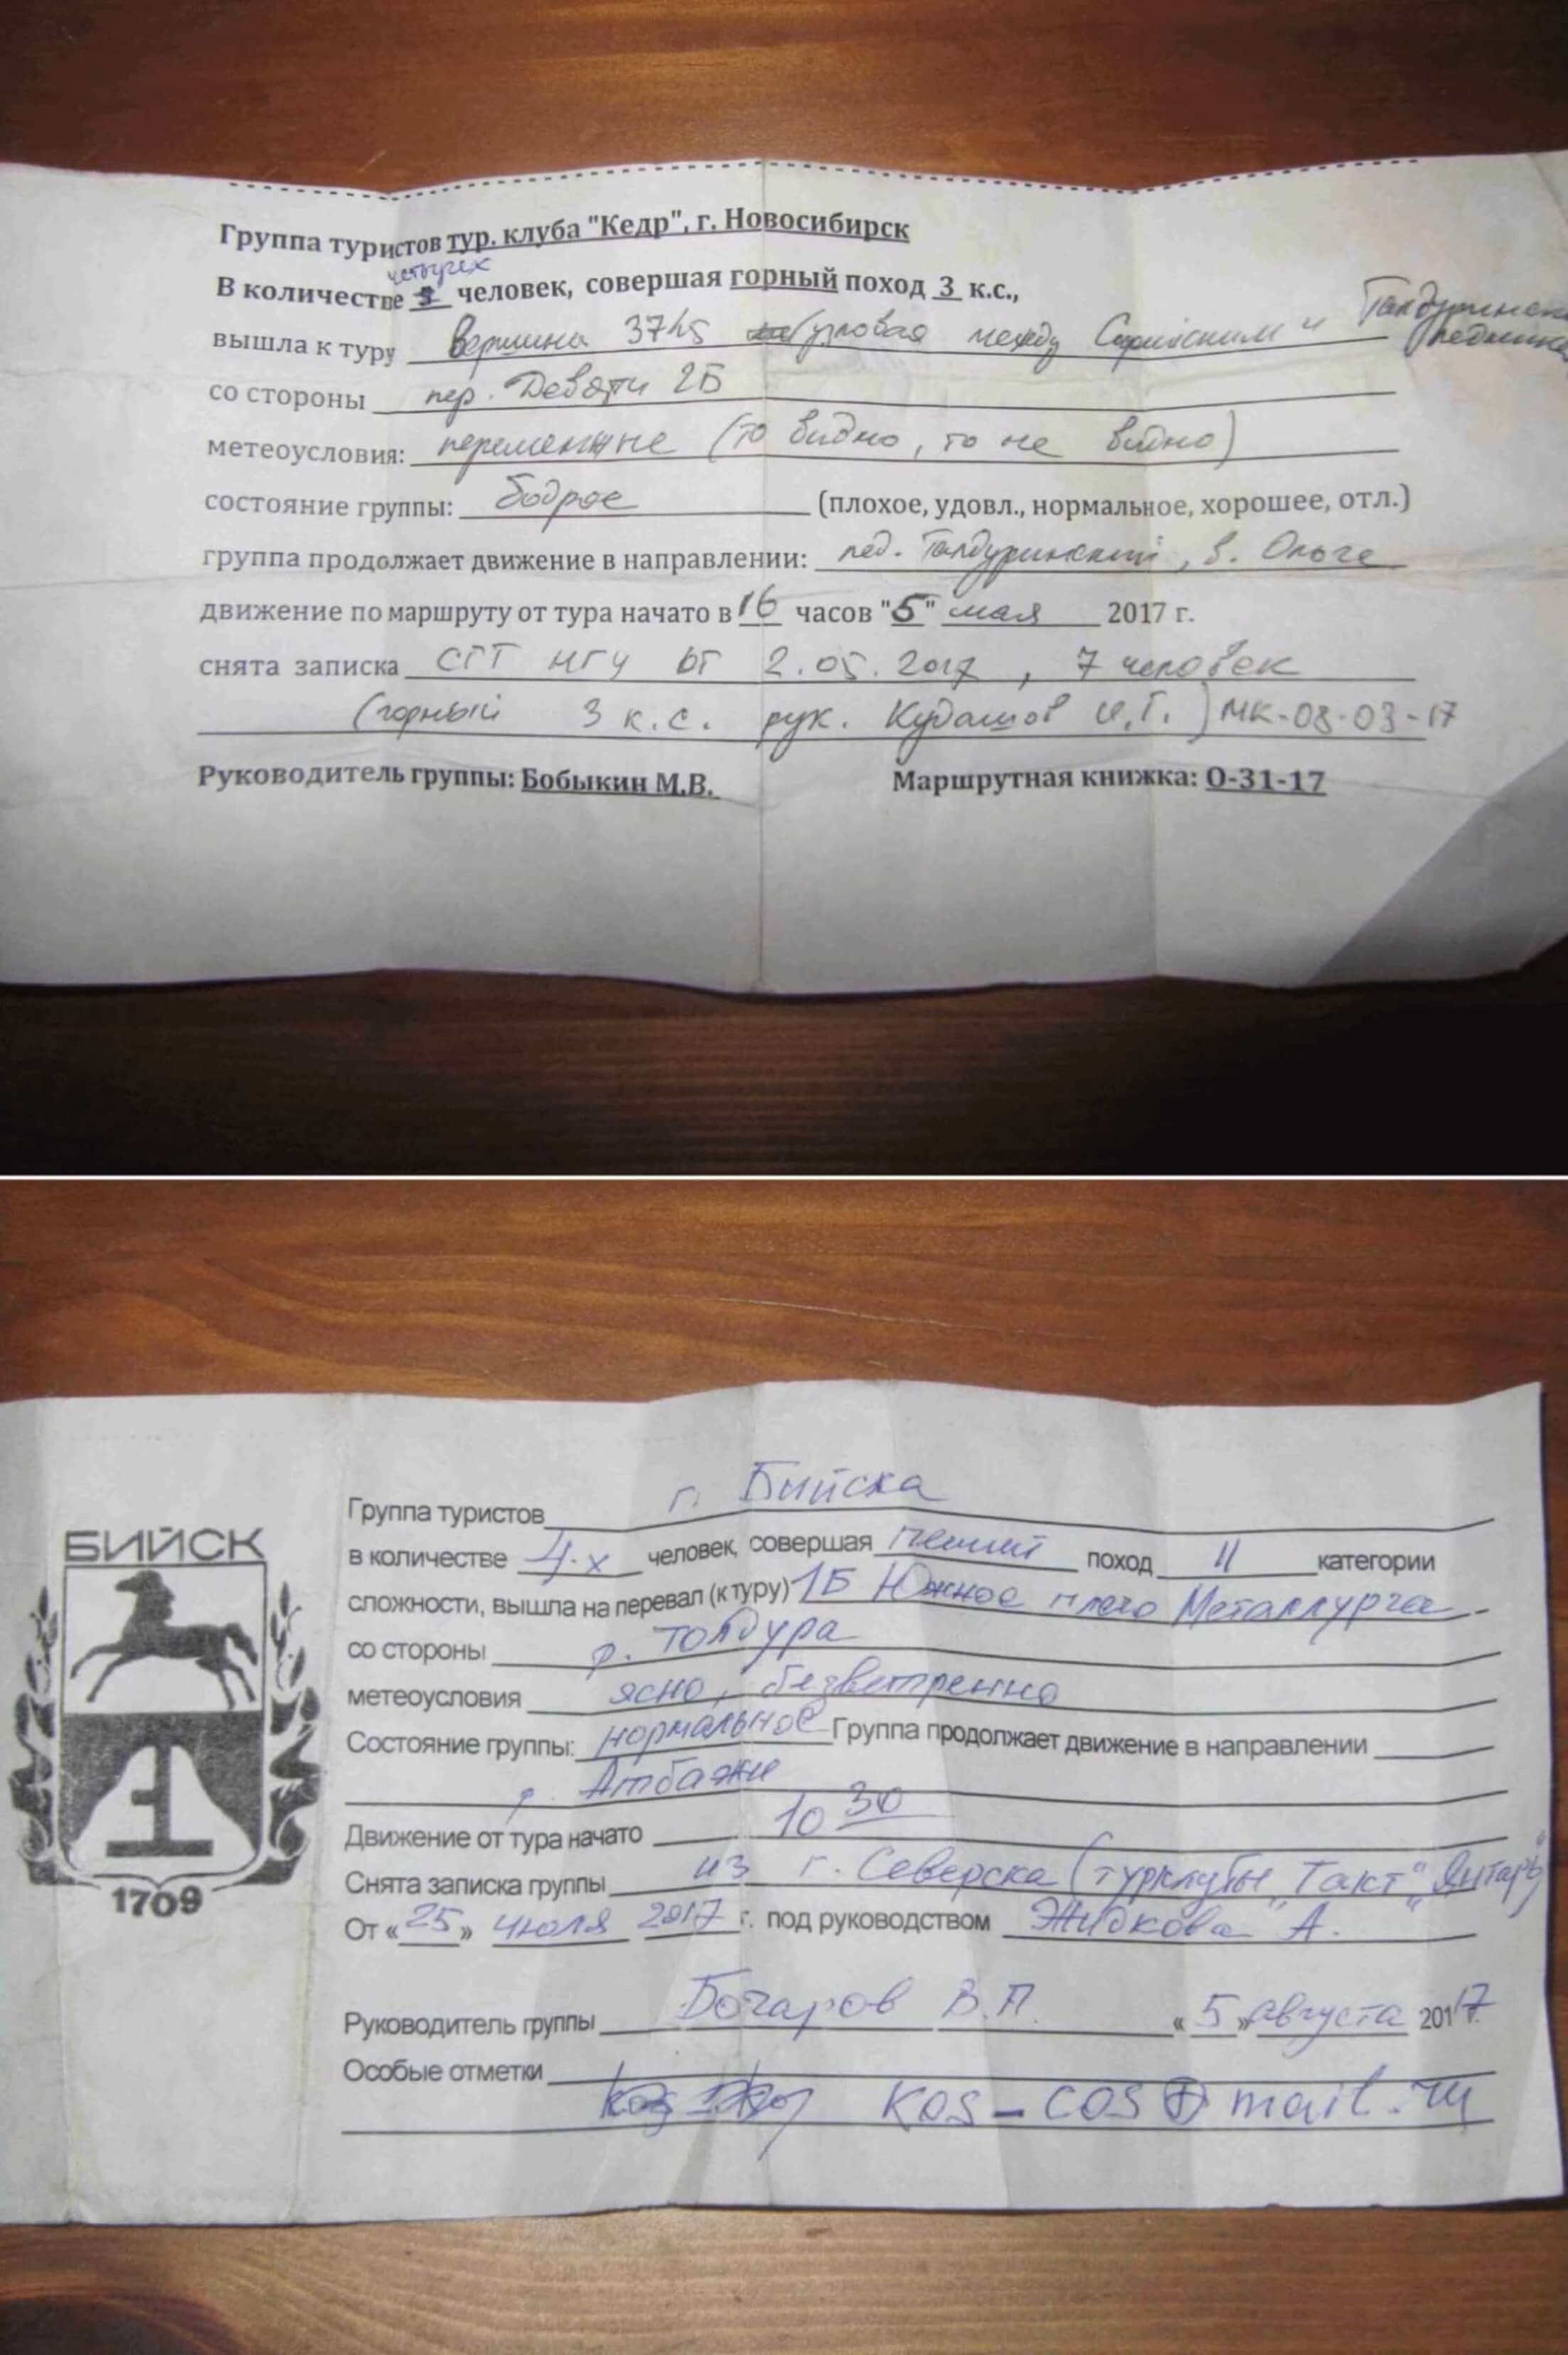 Группа туристов тур. клуба "Кедр", г. Новосибирск
четырех
В количестве человек, совершая горный поход 3 к.с.,
вышла к туру вершина 3745 узловая между Софийским и Талдуринск ледника
со стороны пер. Девяти 2Б
метеоусловия: переменные (то видно, то не видно)
состояние группы: бодрое (плохое, удовл., нормальное, хорошее, отл.)
группа продолжает движение в направлении: лед. Талдуринский, в. Ольге
движение по маршруту от тура начато в 16 часов "5" мая 2017 г.
снята записка СГТ НГУ от 2.05.2017, 7 человек
(горный 3 к.с. рук. Кудашов И.Г.) МК-08-03-17
Руководитель группы: Бобыкин М.В. Маршрутная книжка: О-31-17
БИЙСК
1709
Группа туристов г. Бийска
в количестве 4-х человек, совершая пеший поход II категории
сложности, вышла на перевал (к туру) 1Б Южное плечо Металлурга
со стороны р. Толдура
метеоусловия ясно, безветренно
Состояние группы: нормальное Группа продолжает движение в направлении
р. Атбажи
Движение от тура начато 10 30
Снята записка группы из г. Северска (турклубы "Такт" "Янтарь"
От «25» июля 2017 г. под руководством Жидкова А.
Руководитель группы Бочаров В.П. «5» августа 2017г.
Особые отметки
kos-cos@mail.ru